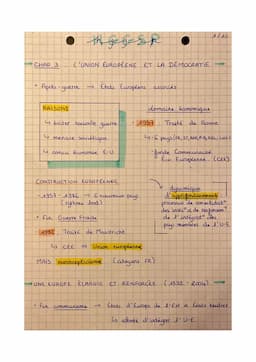 CHAP 3 L'UNION EUROPÉENNE ET LA DÉMOCRATIE
• Après-guerre → États Européens associés
RAISONS
↳ éviter nouvelle guerre
↳ menace soviétique
↳ domaine économique
1957 : Traité de Rome
↳ 6 pays
↳ fonde Communauté
Éco Européenne. (CEE)
CONSTRUCTION EUROPÉENNE
• 1957 - 1992 → 6 nouveaux pays
• Fin Guerre Froide
1992 Traité de Maastricht
↳ CEE → Union européenne
MAIS euroscepticisme (citoyens FR)
dynamique
d'approfondissement
processus de
des liens et de renforcement
de l'intégrat° des
pays membres de l'U.E
UNE EUROPE ÉLARGIE ET RENFORCÉE (1992 - 2004)
• Fin communisme → États d'Europe de l'Est et États neutres
↳ d'intégrer l'U.E